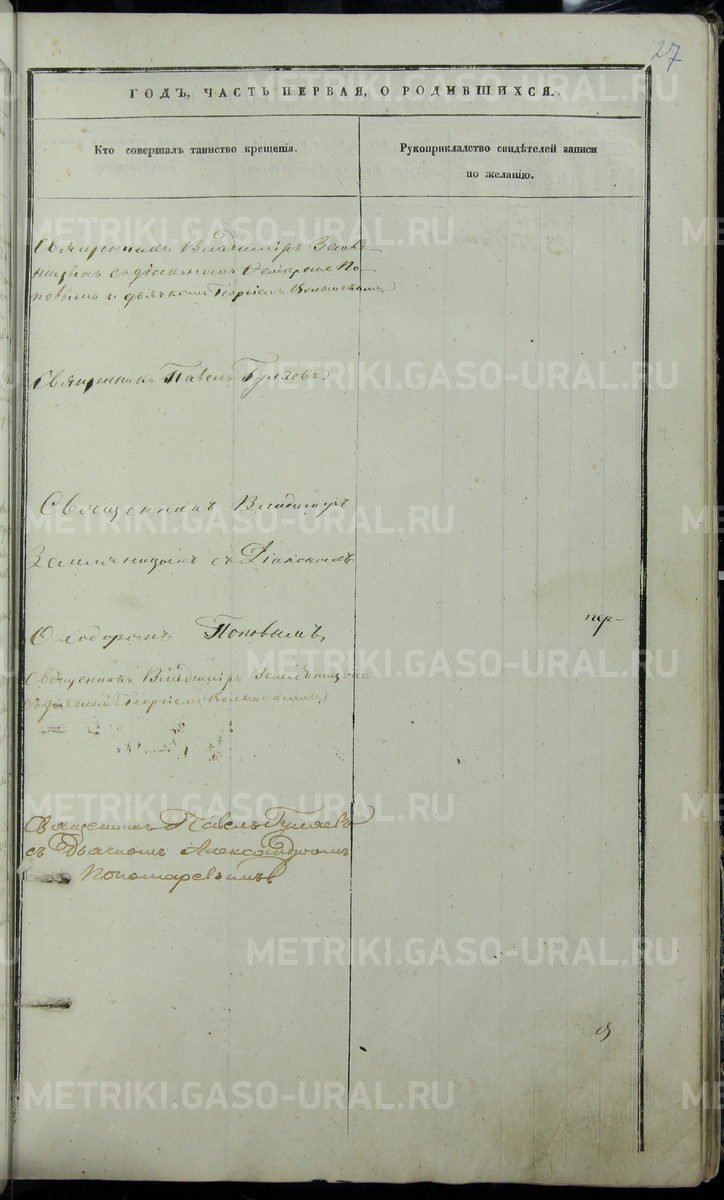 27
ГОДЪ, ЧАСТЬ ПЕРВАЯ, О РОДИВШИХСЯ.
Кто совершалъ таинство крещенія.
Рукоприкладство свидѣтелей записи
по желанію.
METRIKI.GASO-URAL.RU
Священникъ Владиміръ Земля-
ницынъ съ діакономъ Ѳеодоромъ По-
повымъ и дьячкомъ Георгіемъ
Священникъ Павелъ Гуляевъ
Священникъ Владиміръ
Земляницынъ съ Діакономъ
Ѳеодоромъ Поповымъ,
пер-
Священникъ Владиміръ Земляницынъ
съ дьячкомъ Георгіемъ
Священникъ Павелъ Гуляевъ
съ Дьячкомъ Александромъ
Пономаревымъ